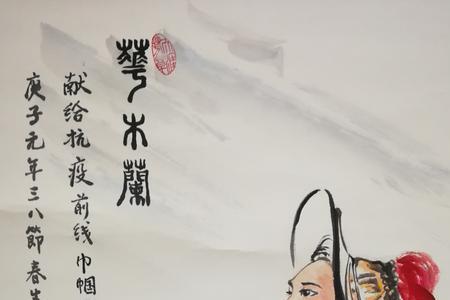 華木蘭
献给抗疫前线巾帼
庚子元年三八節春生